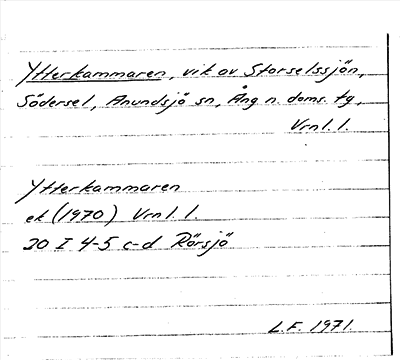 Ytterkammaren, vik av Storselssjön,
Södersel, Anundsjö sn, Ång n. doms. tg,
Vrnl. l.
Ytterkammaren
ek (1970) Vrnl. l.
20 I 4-5 c-d Rörsjö
L.F. 1971.